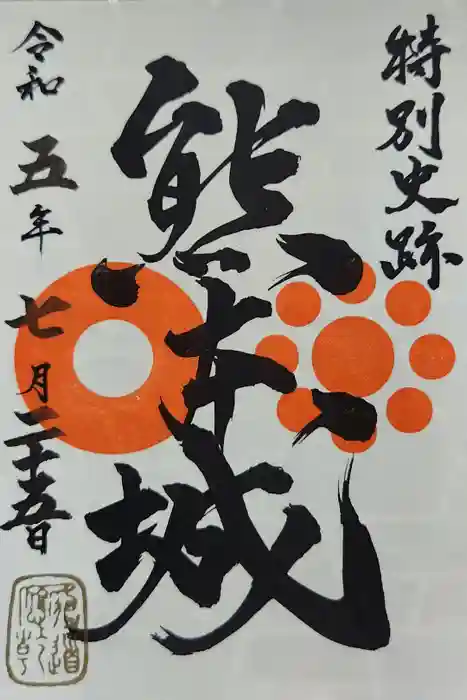 特別史跡
熊本城
令和五年七月二十五日